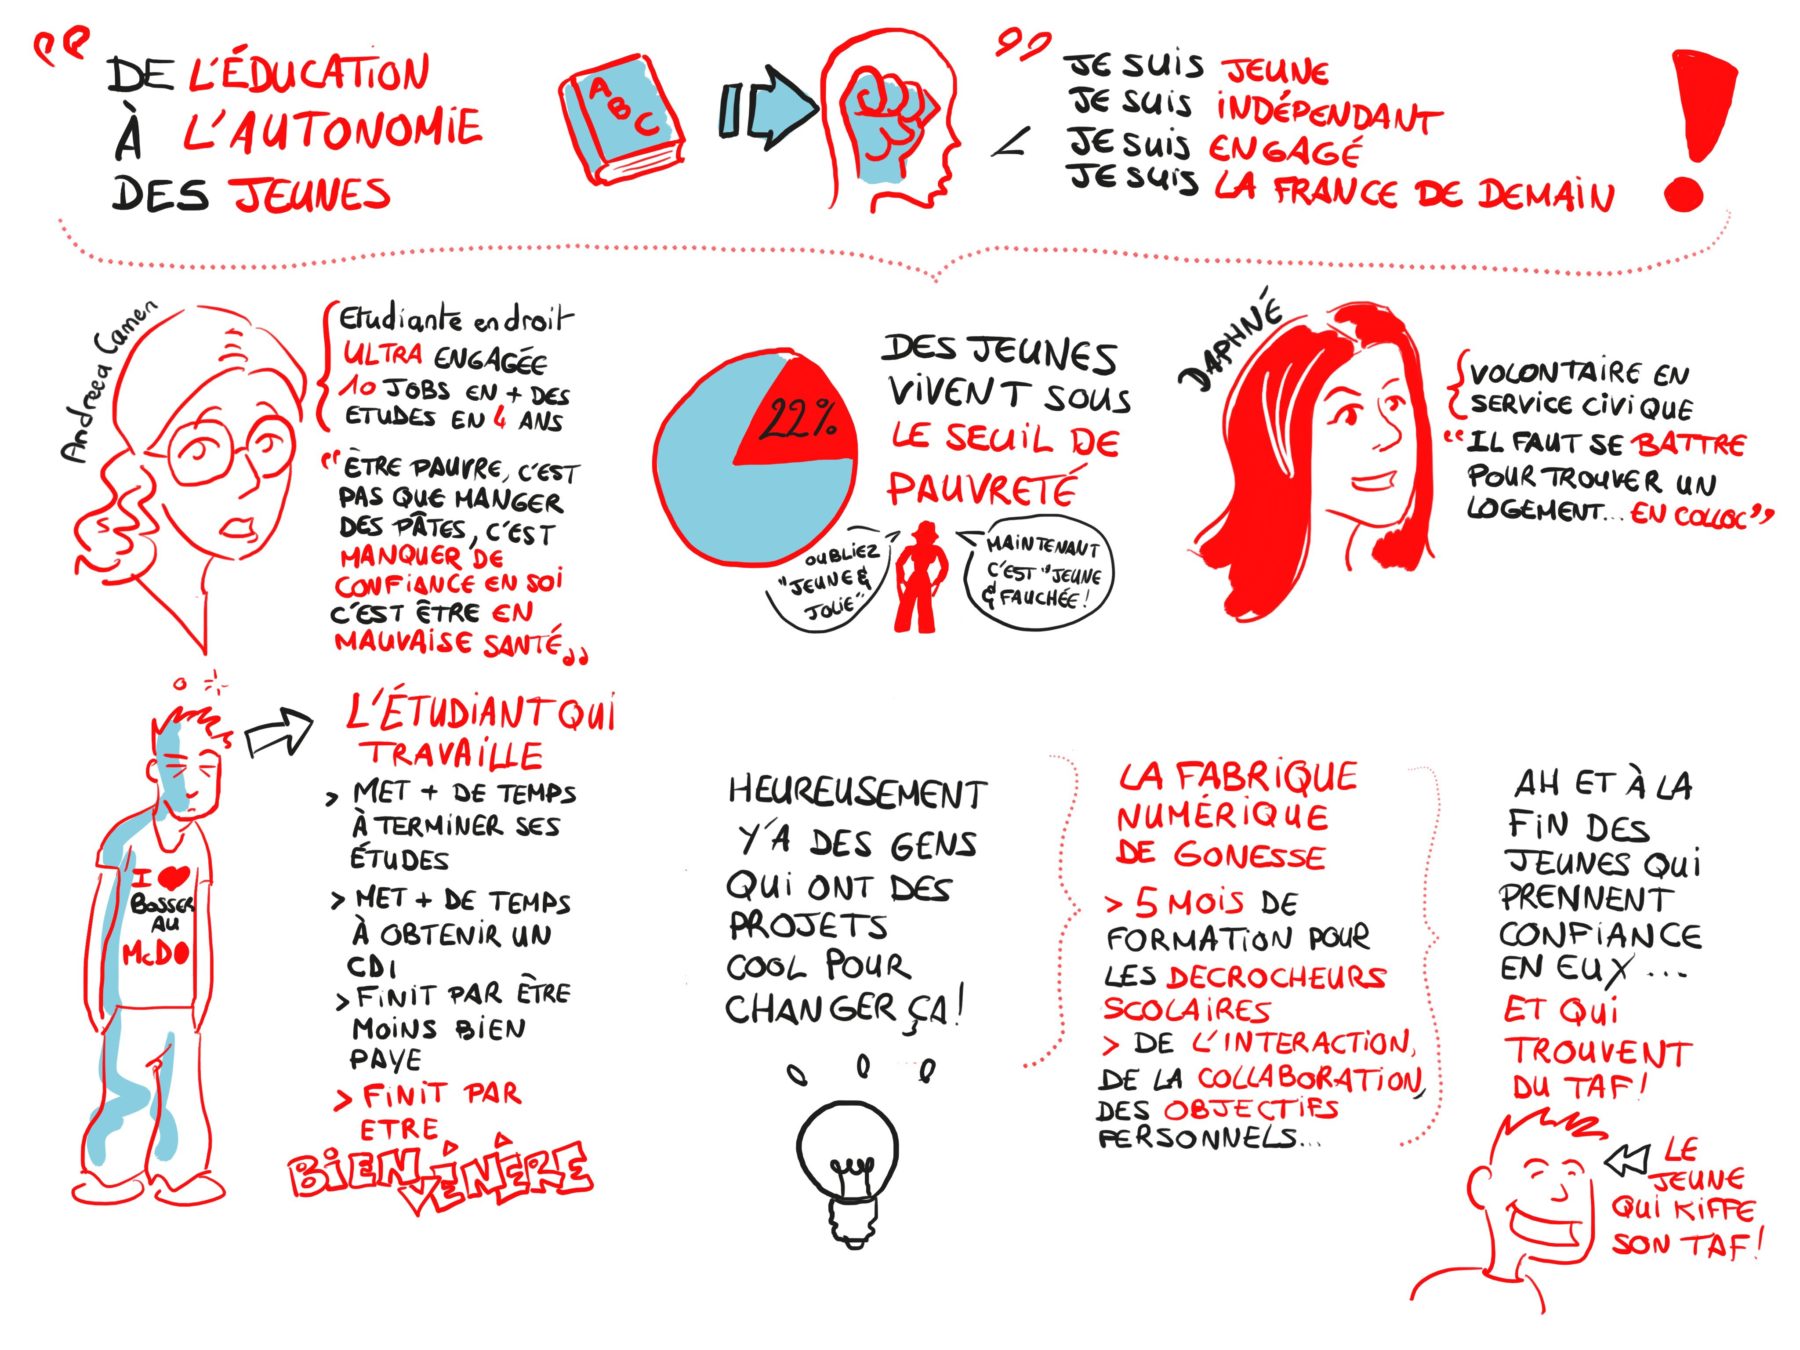 “ DE L'ÉDUCATION
À L'AUTONOMIE
DES JEUNES ”
A
B
C
JE SUIS JEUNE
JE SUIS INDÉPENDANT
JE SUIS ENGAGÉ
JE SUIS LA FRANCE DE DEMAIN
!
Andreea Camen
Etudiante en droit
ULTRA ENGAGÉE
10 JOBS EN + DES
ETUDES EN 4 ANS
“ÊTRE PAUVRE, C'EST
PAS QUE MANGER
DES PÂTES, C'EST
MANQUER DE
CONFIANCE EN SOI
C'EST ÊTRE EN
MAUVAISE SANTÉ”
22%
DES JEUNES
VIVENT SOUS
LE SEUIL DE
PAUVRETÉ
OUBLIEZ
"JEUNE &
JOLIE"!
MAINTENANT
C'EST "JEUNE
& FAUCHÉE!
DAPHNÉ
VOLONTAIRE EN
SERVICE CIVIQUE
“IL FAUT SE BATTRE
POUR TROUVER UN
LOGEMENT... EN COLLOC”
I ♥
BOSSER
AU
McDO
L'ÉTUDIANT QUI
TRAVAILLE
> MET + DE TEMPS
À TERMINER SES
ÉTUDES
> MET + DE TEMPS
À OBTENIR UN
CDI
> FINIT PAR ÊTRE
MOINS BIEN
PAYE
> FINIT PAR
ETRE
BIEN VÉNÈRE
HEUREUSEMENT
Y'A DES GENS
QUI ONT DES
PROJETS
COOL POUR
CHANGER ÇA!
LA FABRIQUE
NUMÉRIQUE
DE GONESSE
> 5 MOIS DE
FORMATION POUR
LES DECROCHEURS
SCOLAIRES
> DE L'INTERACTION,
DE LA COLLABORATION,
DES OBJECTIFS
PERSONNELS...
AH ET À LA
FIN DES
JEUNES QUI
PRENNENT
CONFIANCE
EN EUX...
ET QUI
TROUVENT
DU TAF!
LE
JEUNE
QUI KIFFE
SON TAF!